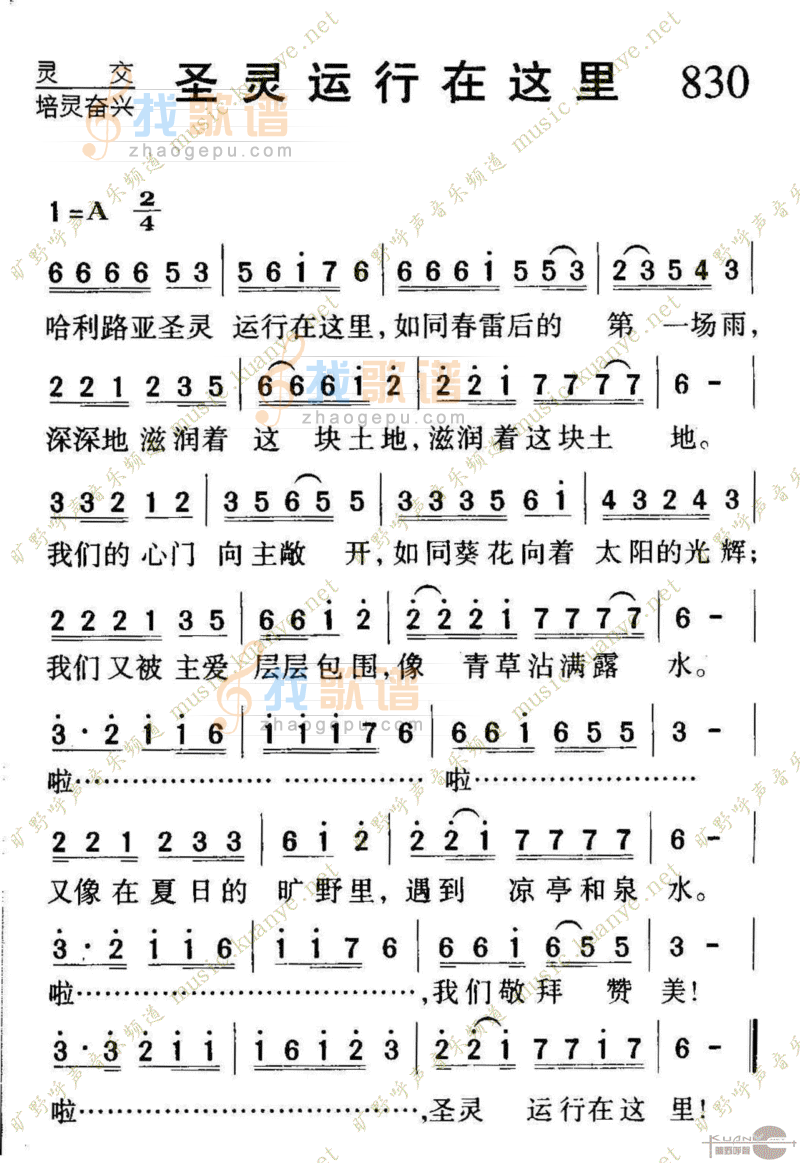 灵 交
培灵奋兴
圣灵运行在这里 830
找歌谱
zhaogepu.com
1=A 2/4
6 6 6 6 5 3 | 5 6 i 7 6 | 6 6 6 i 5 5 3 | 2 3 5 4 3 |
哈利路亚圣灵 运行在这里,如同春雷后的 第 一场雨,
2 2 1 2 3 5 | 6 6 6 i 2 | 2 2 i 7 7 7 7 | 6 - |
深深地 滋润着 这 块土地,滋润着这块土 地。
3 3 2 1 2 | 3 5 6 5 5 | 3 3 3 5 6 i | 4 3 2 4 3 |
我们的 心门 向主敞 开,如同葵花向着 太阳的光辉;
2 2 2 1 3 5 | 6 6 i 2 | 2 2 2 i 7 7 7 7 | 6 - |
我们又被 主爱 层层包围,像 青草沾满露 水。
3 · 2 i i 6 | i i i 7 6 | 6 6 i 6 5 5 | 3 - |
啦…………………… 啦……………………
2 2 1 2 3 3 | 6 i 2 | 2 2 i 7 7 7 7 | 6 - |
又像在夏日的 旷野里,遇到 凉亭和泉 水。
3 · 2 i i 6 | i i 7 6 | 6 6 i 6 5 5 | 3 - |
啦……………………………,我们敬拜 赞 美!
3 · 3 2 i i | i 6 i 2 3 | 2 2 i 7 i 7 | 6 - ‖
啦……………………………,圣灵 运行在这 里!
旷野呼声音乐频道 music.kuanye.net
KUANYE
旷野呼声